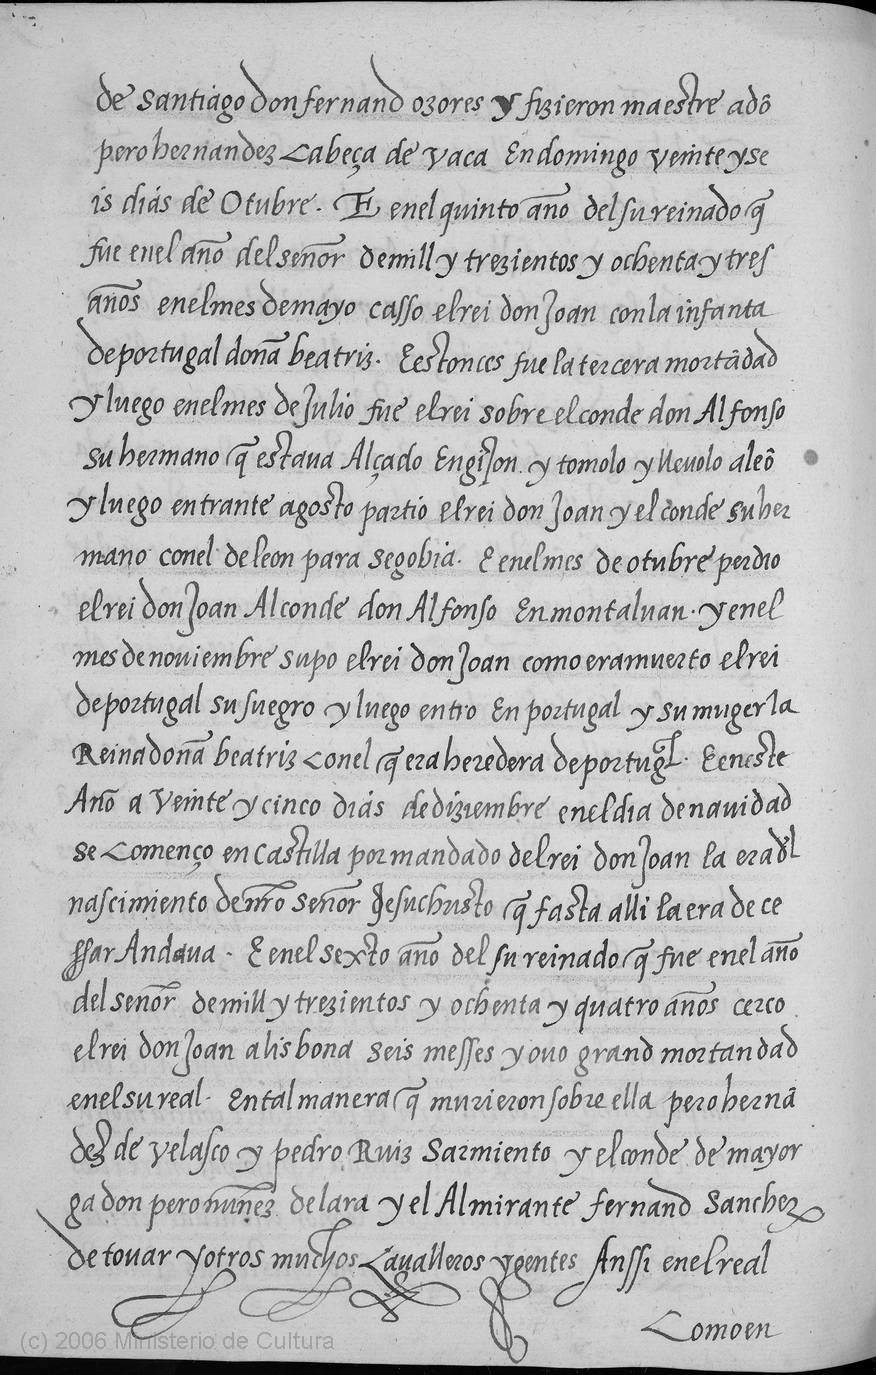 de Santiago don fernand ozores y fizieron maestre adõ
pero hernandez Cabeça de vaca En domingo veinte y se
is dias de Otubre. E enel quinto año del su reinado q̃
fue enel año del señor de mill y trezientos y ochenta y tres
años enel mes de mayo casso el rei don Joan con la infanta
de portugal doña beatriz. E estonces fue la tercera mortãdad
y luego enel mes de Julio fue el rei sobre el conde don Alfonso
su hermano q̃ estaua Alçado En gijon y tomolo y lleuolo a leõ
y luego entrante agosto partio el rei don Joan y el conde su her
mano conel de leon para segobia. E enel mes de otubre perdio
el rei don Joan Al conde don Alfonso En montaluan. y enel
mes de nouiembre supo el rei don Joan como era muerto el rei
de portugal su suegro y luego entro En portugal y su muger la
Reina doña beatriz Conel q̃ era heredera de portugl. E eneste
Año a Veinte y cinco dias de diziembre enel dia de nauidad
se Començo en Castilla por mandado del rei don Joan la era dl
nascimiento de nr̃o señor Jesuchristo q̃ fasta alli la era de ce
ssar Andaua. E enel sexto año del su reinado q̃ fue enel año
del señor de mill y trezientos y ochenta y quatro años cerco
el rei don Joan a lisbona seis messes y ouo grand mortandad
enel su real. En tal manera q̃ murieron sobre ella pero hernã
dez de velasco y pedro Ruiz Sarmiento y el conde de mayor
ga don pero nuñez de lara y el Almirante fernand Sanchez
de touar y otros muchos Caualleros y gentes Anssi enel real
Como en
(c) 2006 Ministerio de Cultura